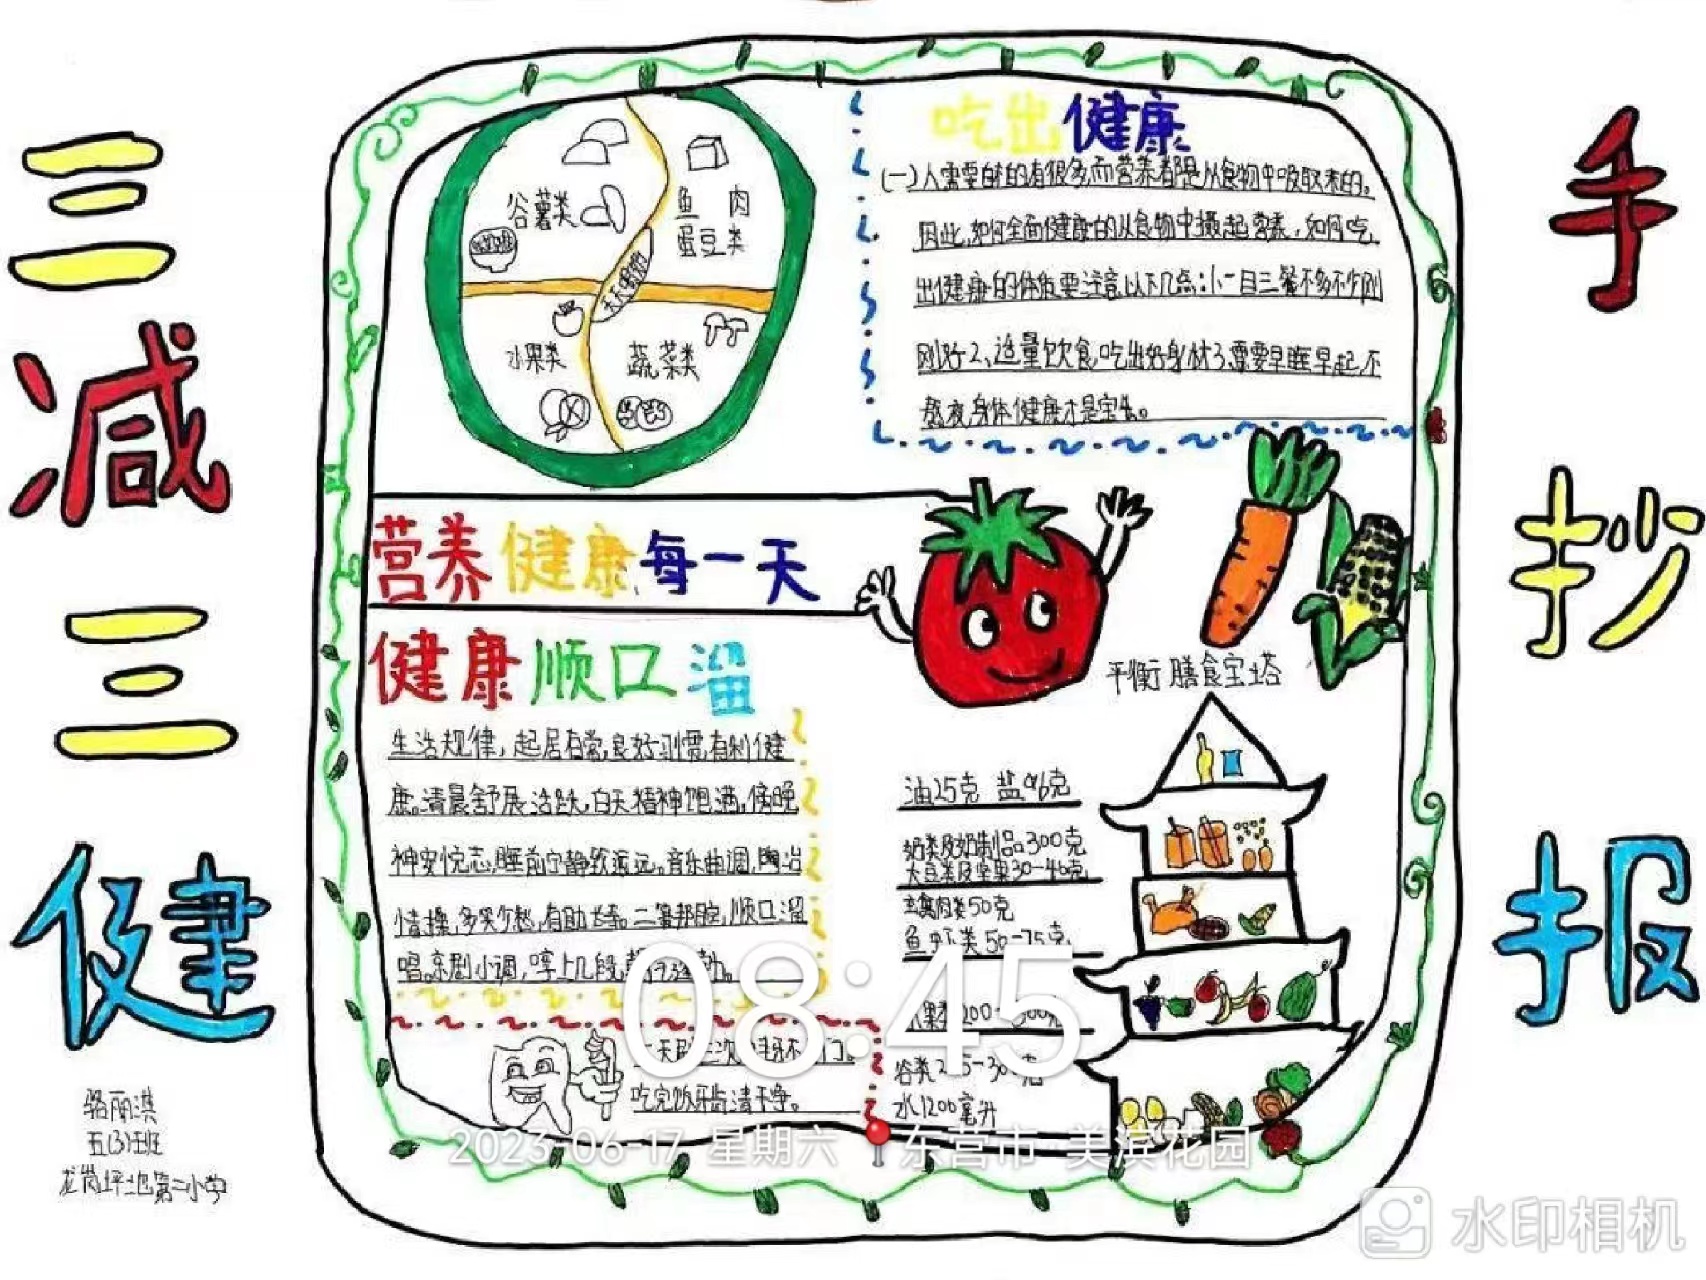 三减三健
手抄报
谷薯类
鱼 肉
蛋豆类
水果类
蔬菜类
吃出健康
因此,如何全面健康的从食物中摄起营养,如何吃
出健康的体魄要注意以下几点:1、一日三餐不多不少刚
刚好2、适量饮食吃出好身材3、需要早睡早起,不
熬夜,身体健康才是宝。
营养健康每一天
健康顺口溜
生活规律,起居有常,良好习惯,有利健
康。清晨舒展活跃,白天精神饱满,傍晚
神安悦志,睡前宁静致遥远。音乐曲调,陶冶
情操,多笑少愁,有助长寿。二簧邦腔,顺口溜
唱。京剧小调,哼上几段,
吃完饭牙齿清干净。
平衡膳食宝塔
油25克 盐6克
奶类及奶制品300克
大豆类及坚果30-40克
畜禽肉类50克
鱼虾类50-75克
谷类
水1200毫升
骆丽淇
五(3)班
龙岗坪地第二小学
08:45
2023-06-17 星期六 东营市·美滨花园
水印相机